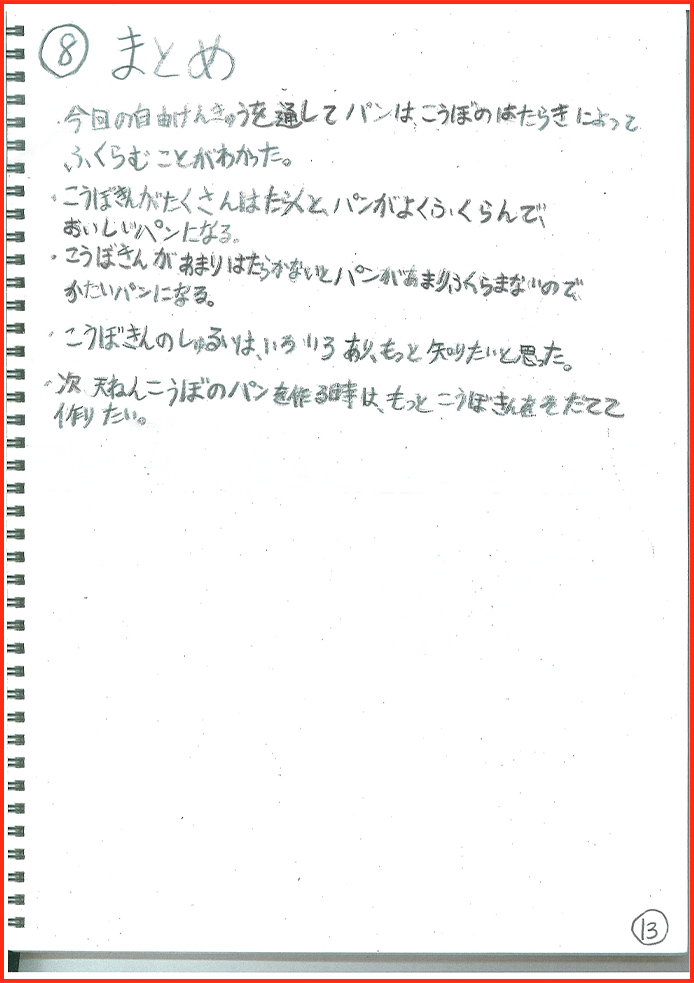 ⑧ まとめ
・今回の自由けんきゅうを通してパンは、こうぼのはたらきによって
ふくらむことがわかった。
・こうぼきんがたくさんはたらくと、パンがよくふくらんで、
おいしいパンになる。
・こうぼきんがあまりはたらかないとパンがあまりふくらまないので、
かたいパンになる。
・こうぼきんのしゅるいは、いろいろあり、もっと知りたいと思った。
・次、天ねんこうぼのパンを作る時は、もっとこうぼきんをそだてて
作りたい。
⑬